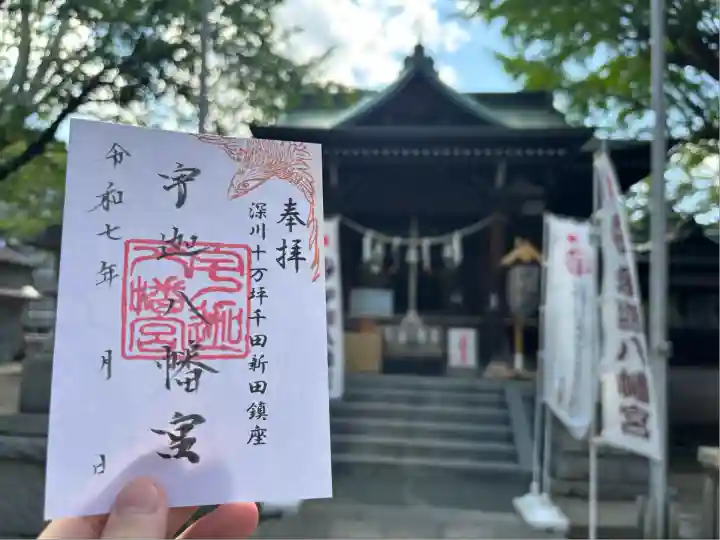 奉拝
深川十万坪千田新田鎮座
宇迦八幡宮
令和七年　月　日
宇迦八幡宮
迦八幡宮